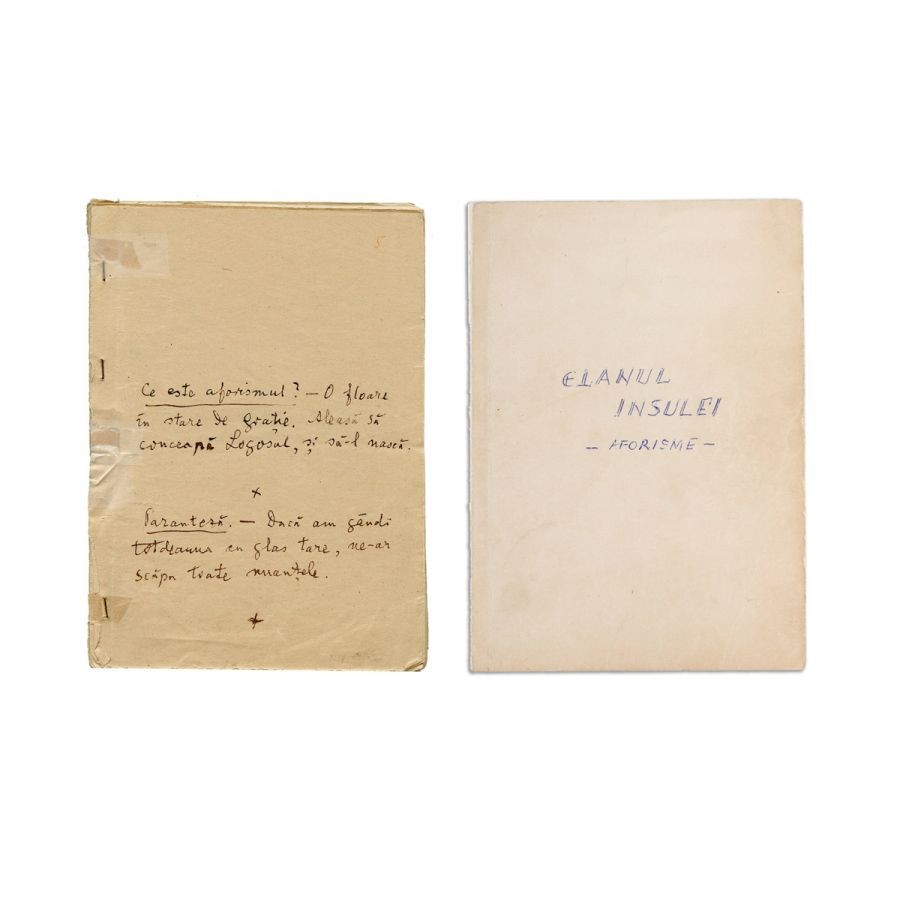 5
Ce este aforismul? — O floare
în stare de grație. Aleasă să
conceapă Logosul, și să-l nască.
x
Paranteză. — Dacă am gândi
totdeauna cu glas tare, ne-ar
scăpa toate nuanțele.
x
ELANUL
INSULEI
– AFORISME –